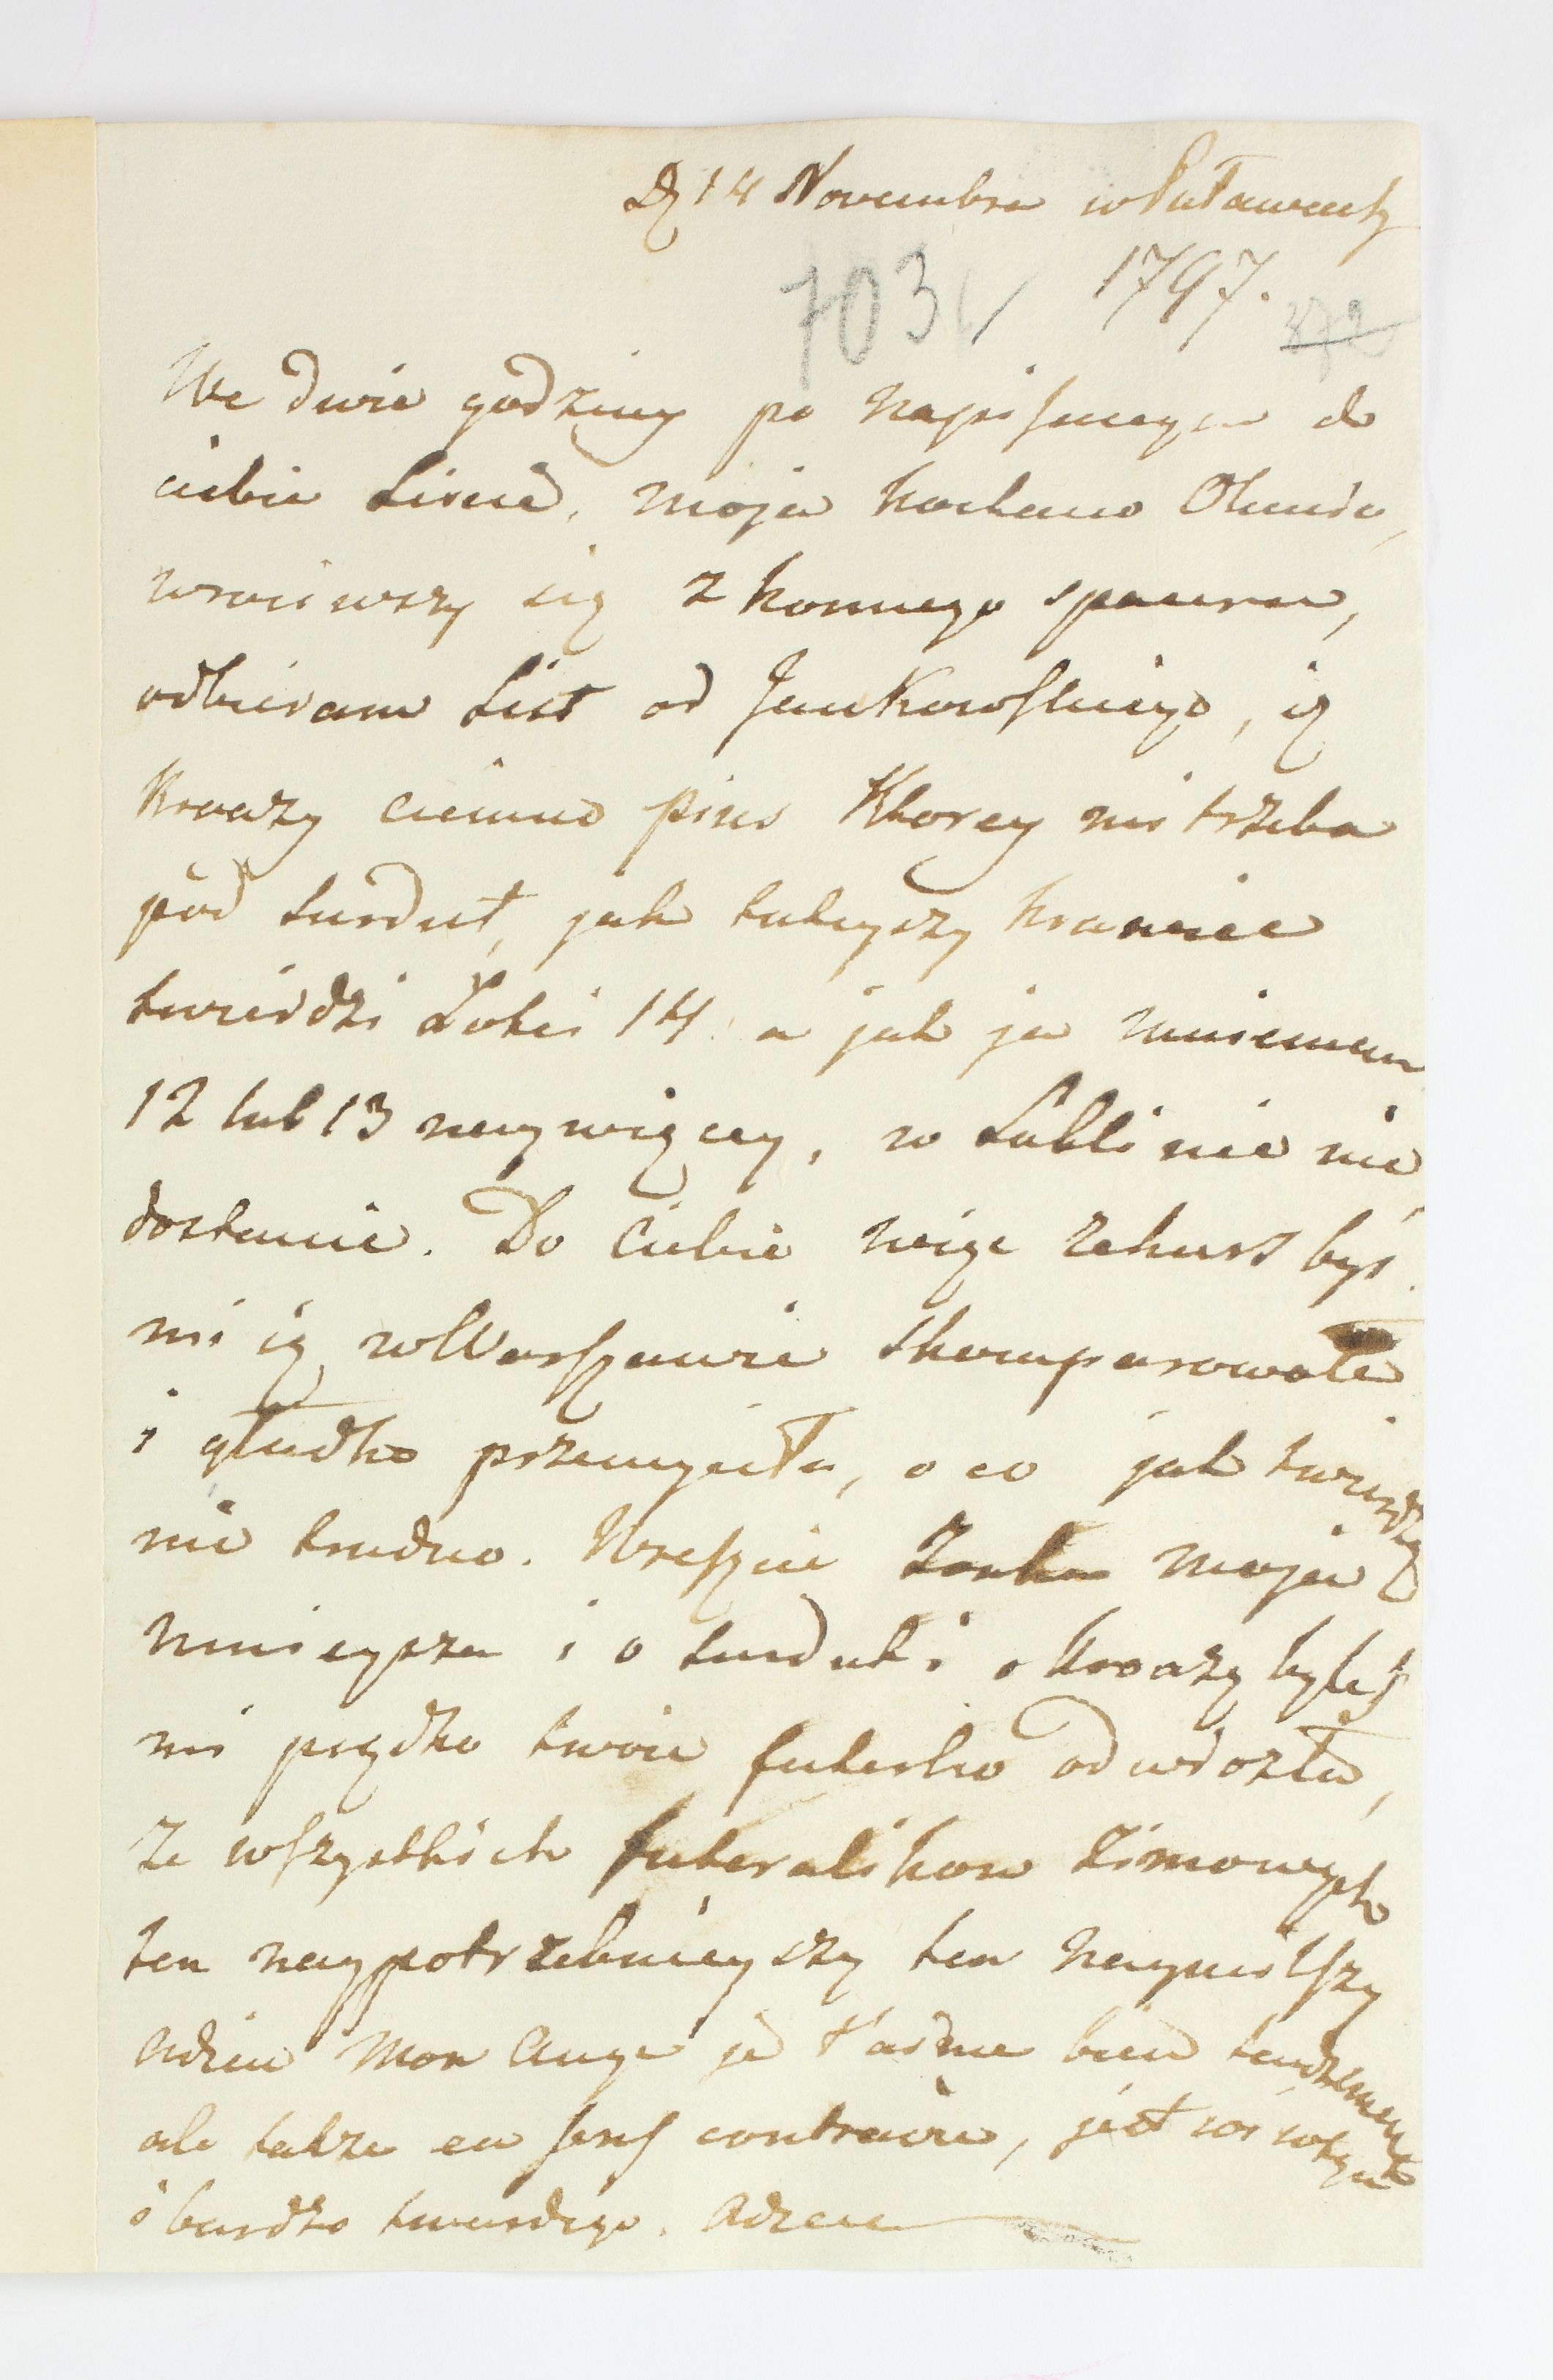 D 14 Novembra w Puławach
1797.
703
372
We dwie godziny po napisanym do
ciebie Liscie, moja kochano Olesiu,
wrociwszy się z konnego spaceru,
odbieram List od Jankowskiego, iz
Kroazy ciemno piżo Ktorey mi trzeba
pod surdut, jak tuteyszy krawiec
twierdzi Łokci 14. a jak ja mniemam
12 lub 13 naywięcey, w Lublinie nie
dostanie. Do Ciebie więc rekurs byś
mi ią w Warszawie skomparowała
i gładko przemyciła, o co jak twierdzą
nie trudno. Wreszcie moja
mnieysza i o surdut i o Kroazę byleś
mi prędko twoie futerko odwiozła,
Ze wszystkich futeralikow Zimowych
ten naypotrzebnieyszy ten naymilszy
adieu Mon Ange je t'aime bien tendrement
ale także en sens contraire, jest coś w tym
i bardzo twardego. Adieu